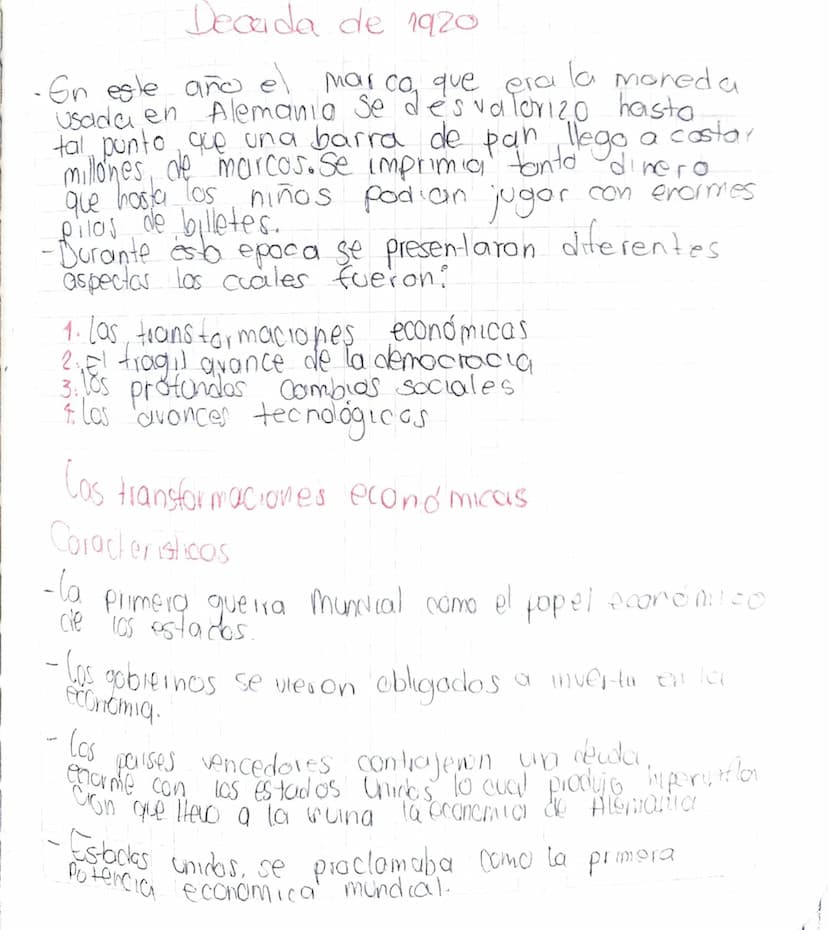 Decada de 1920
- En este año el marco que era la moneda
usada en Alemania se desvalorizo hasta
tal punto que una barra de pan llego a costar
millones de marcos. Se imprimia tanto dinero
que hasta los niños podian jugar con enormes
pilas de billetes.
- Durante esta epoca se presentaron diferentes
aspectos los cuales fueron:
1. Las transformaciones económicas
2. El fragil avance de la democracia
3. los profundos cambios sociales
4. los avances tecnológicos
Las transformaciones económicas
Caracteristicas
- La primera guerra mundial como el papel económico
de los estados.
- Los gobiernos se vieron obligados a invertir en la
economia.
- Los paises vencedores contrajeron un deuda
enorme con los estados Unidos lo cual produjo
cion que llevo a la ruina la economia de Alemania
- Estados unidos, se proclamaba como la primera
potencia economica mundial.